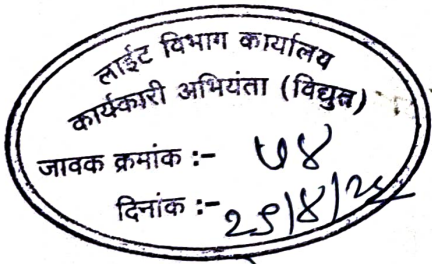 लाईट विभाग कार्यालय
कार्यकारी अभियंता (विद्युत)
जावक क्रमांक :- ७४
दिनांक :-